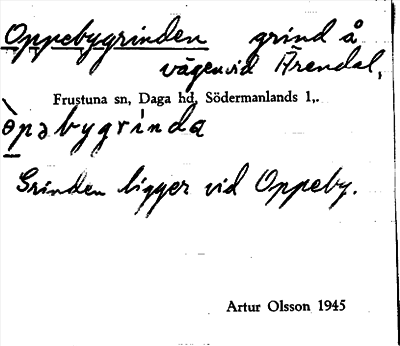 Oppebygrinden grind å
vägen vid Ärendal,
Frustuna sn, Daga hd, Södermanlands l,.
ə̀pəbygrinda
Grinden ligger vid Oppeby.
Artur Olsson 1945